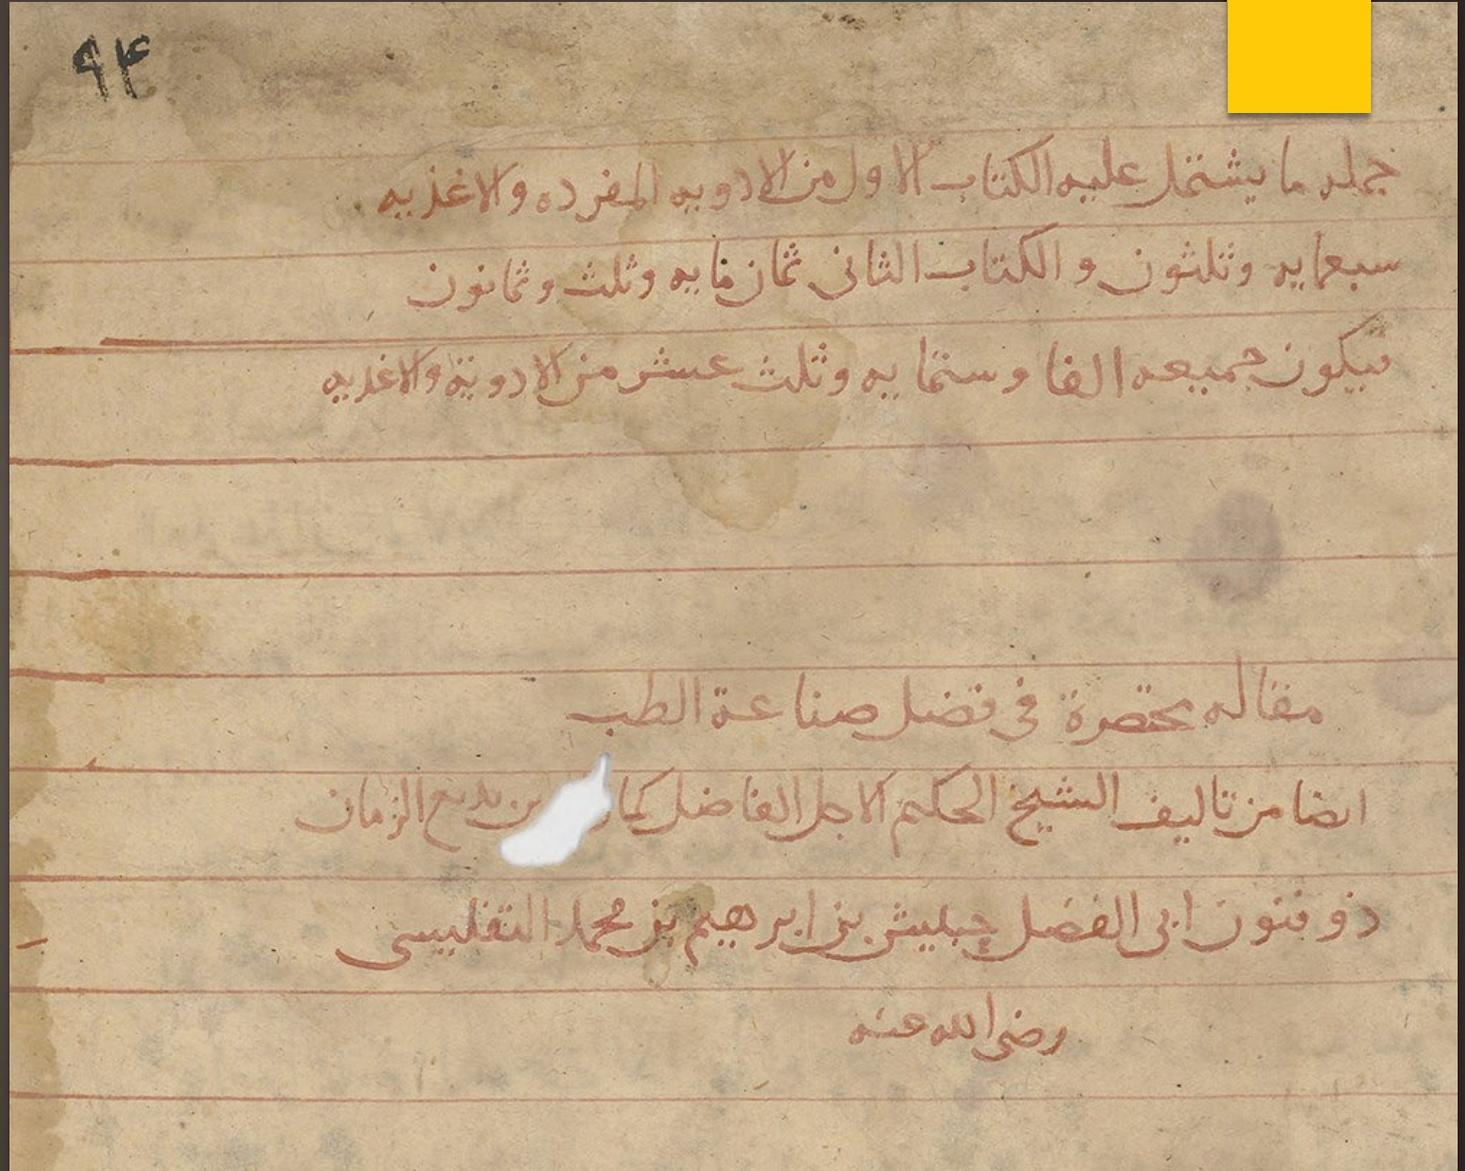 ۹۴
جمله ما يشتمل عليه الكتاب الاول من الادويه المفرده والاغذيه
سبعمايه وثلثون و الكتاب الثانى ثمان مايه وثلث وثمانون
فيكون جميعه الفا وستمايه وثلث عشر من الادوية والاغذيه
مقاله مختصرة فى فضل صناعة الطب
ايضا من تاليف الشيخ الحكيم الاجل الفاضل بديع الزمان
ذو فنون ابى الفضل حبيش بن ابرهيم بن محمد التفليسى
رضى الله عنه